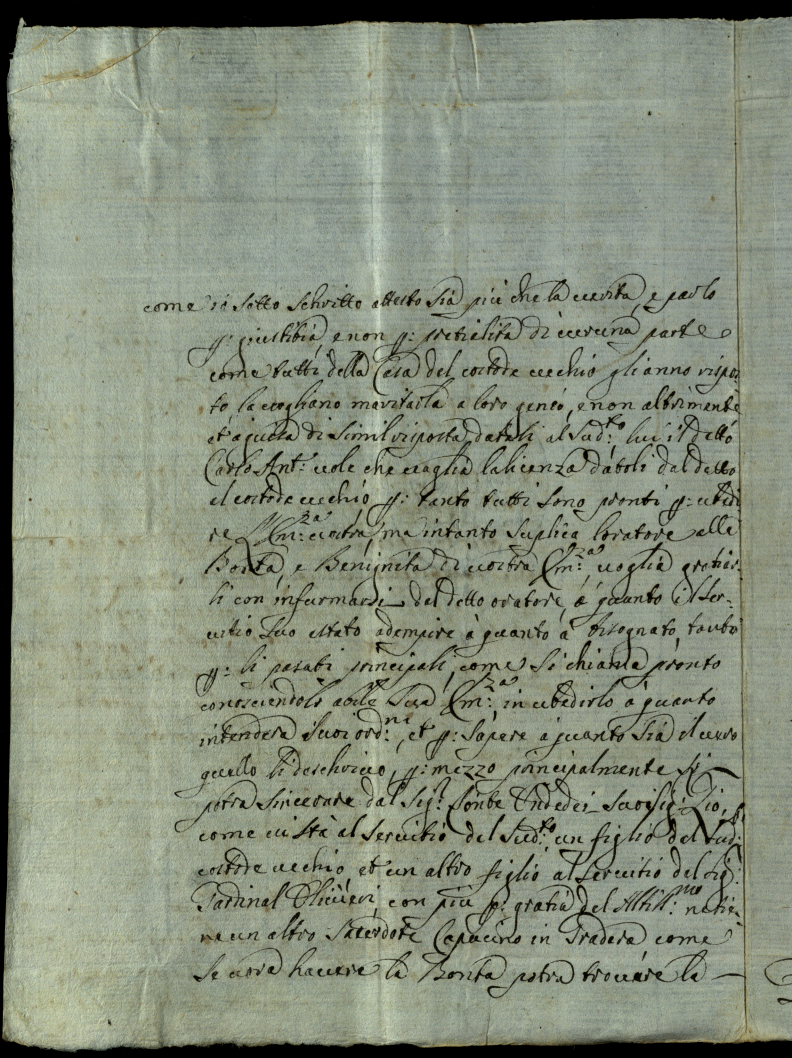 come io sotto schritto attesto sia più che la uerita, e parlo
p: giustitia, e non p: partialità di ueruna parte
come tutti della Casa del costode uecchio gli anno rispos-
to, la uogliano maritarla a loro genio, e non altrimente
et a guisa di simil risposta datoli al Sud:to lui il detto
Carlo Ant: uole che uaglia la licenza datoli dal detto
il costode uecchio, p: tanto tutti sono pronti p: ubidi
re Em:za uostra, ma intanto suplica loratore alla
Bontà, e Benignità di uostra Em:za uoglia gratiar-
li con infurmarsi del detto oratore, à quanto il ser-
uitio suo estato adempire à quanto à bisognato, tanto
p: li pasati principali, come si chiama pronto
conosciendolo abile Sua Em:za in ubidirlo à quanto
intenderà i suoi ord:ni, et p: sapere à quanto sia il uero
quello li deschriuo, p: mezzo principalmente si
potra sincerare dal Sig:r Conte Undedei suo sig: Zio,
come ui sta al seruitio del Sud:to un figlio del Sud:
costode uecchio et un altro figlio al seruitio del Sig:
Cardinal Oliuieri, con più p: gratia del Altiss:mo ne tie-
ne un altro Sacerdote Capucino in Pradera come
se uora hauere la Bontà potra trouare la